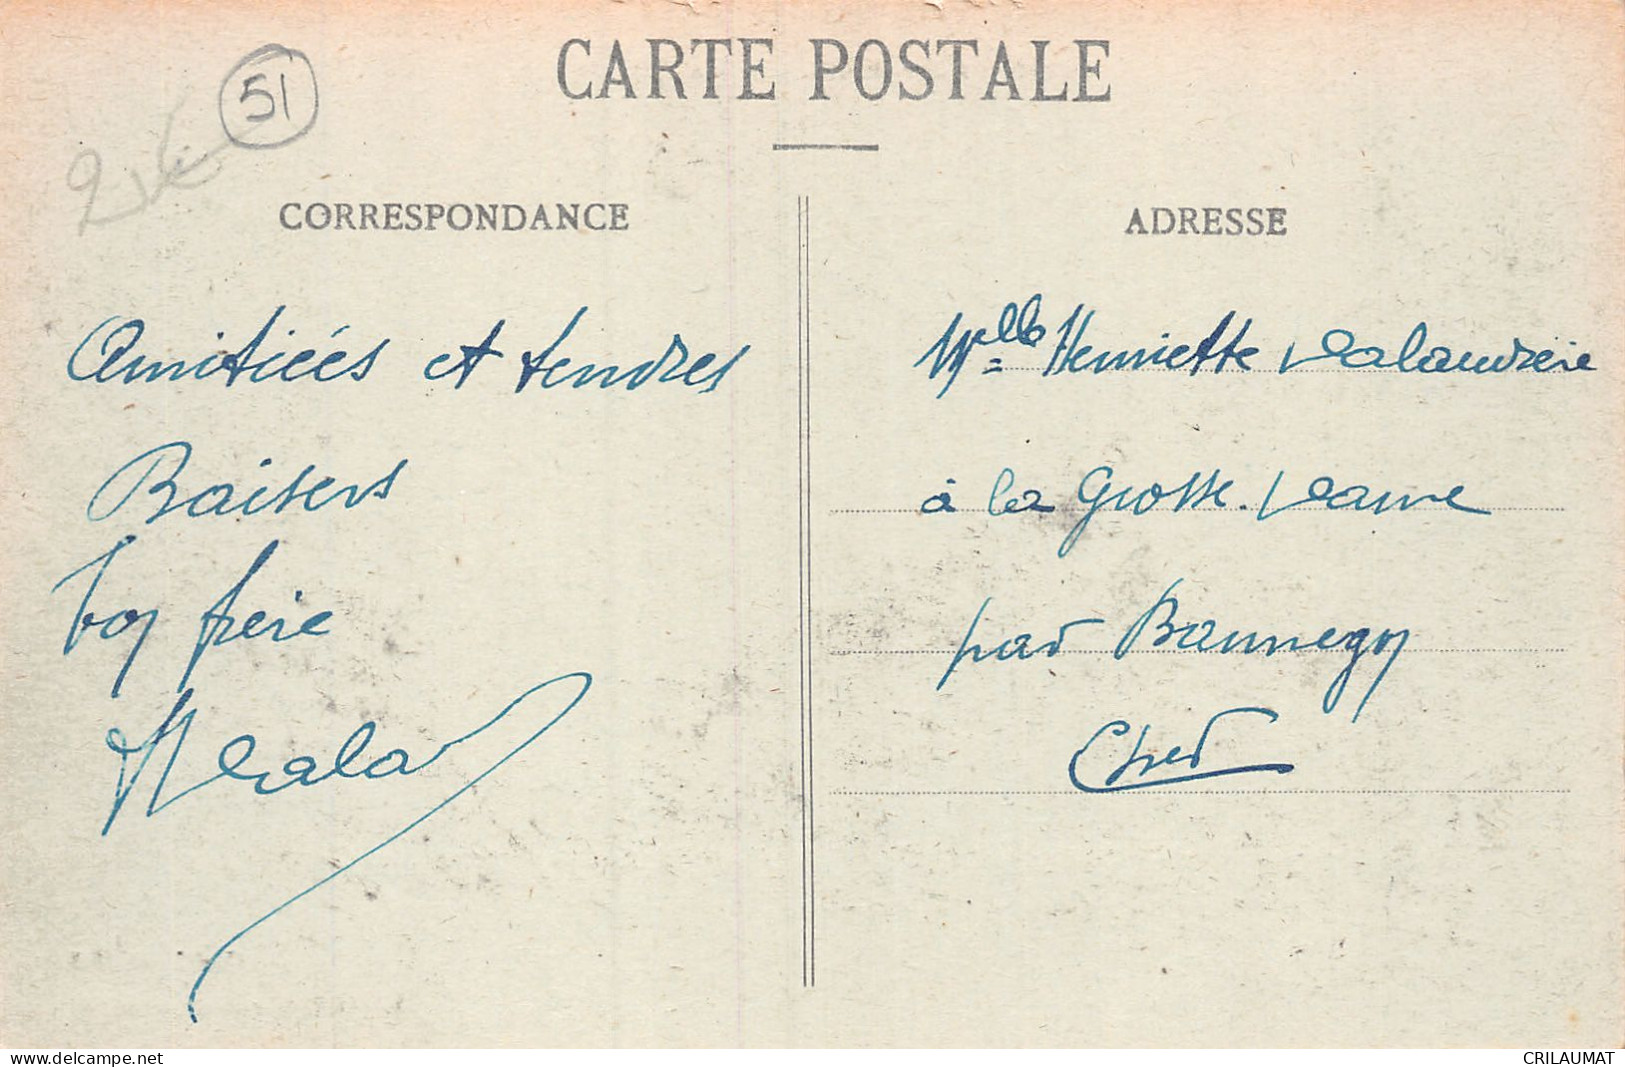 CARTE POSTALE
51
CORRESPONDANCE
Amitiées et tendres
Baisers
Ton frère
ADRESSE
Melle Henriette
à la Grosse
par Bannegon
Cher
www.delcampe.net
CRILAUMAT